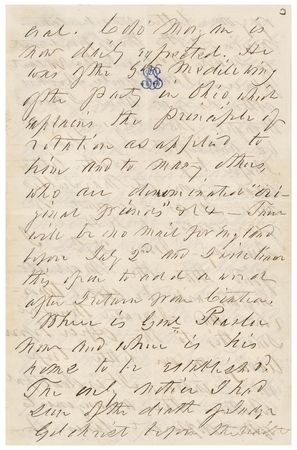 eral. Col° Morgan is
now daily expected. He
was of the Gov Medill wing
of the Party in Ohio, which
explains the principle of
rotation as applied to
him and to many others
who are denominated "ori-
ginal friends" &c &c — There
will be no mail for England
before July 2nd and I will leave
this open to add a word
after I return from Cintra.
Where is Genl Peaslee
now and where is his
home to be established?
The only notice I had
seen of the death of Judge
Gilchrist before the receipt